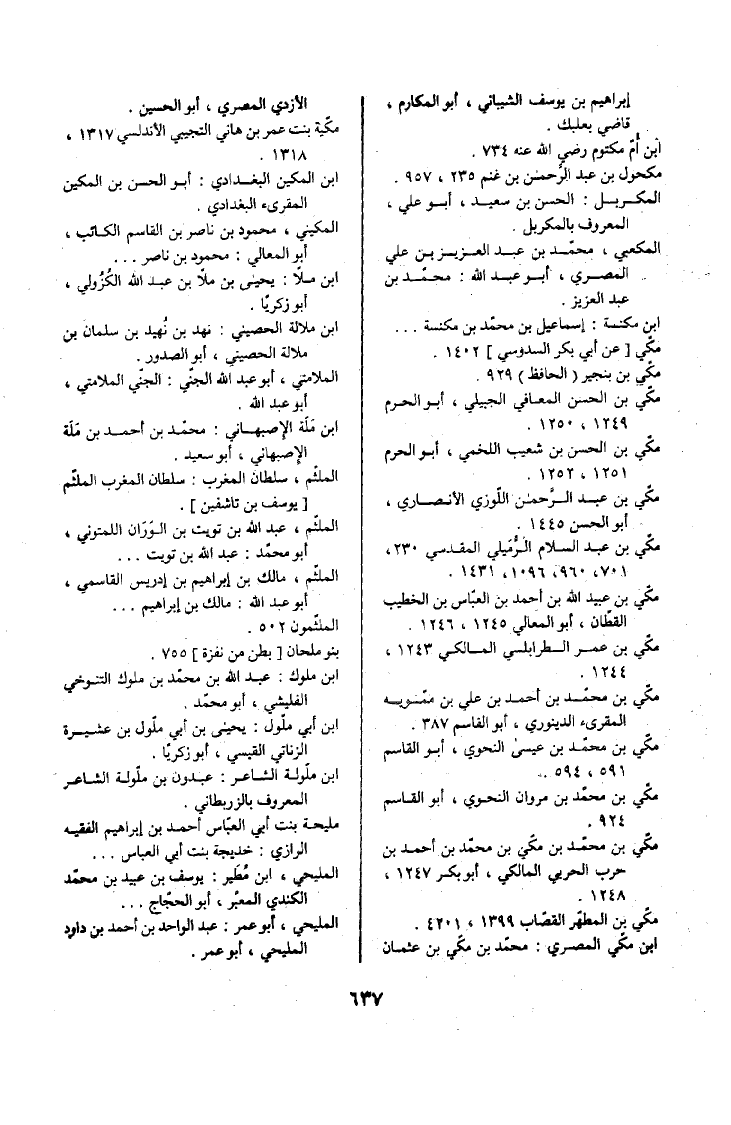 إبراهيم بن يوسف الشيباني ، أبو المكارم ،
قاضي بعلبك .
ابن أُمّ مكتوم رضي الله عنه ٧٣٤ .
مكحول بن عبد الرَّحمٰن بن غنم ٢٣٥ ، ٩٥٧ .
المكربل : الحسن بن سعيد ، أبو علي ،
المعروف بالمكربل .
المكعبي ، محمّد بن عبد العزيز بن علي
المصري ، أبو عبد الله : محمّد بن
عبد العزيز .
ابن مكنسة : إسماعيل بن محمّد بن مكنسة ...
مكّي [ عن أبي بكر السدوسي ] ١٤٠٢ .
مكّي بن بنجير ( الحافظ ) ٩٢٩ .
مكّي بن الحسن المعافي الجبيلي ، أبو الحرم
١٢٤٩ ، ١٢٥٠ .
مكّي بن الحسن بن شعيب اللخمي ، أبو الحرم
١٢٥١ ، ١٢٥٢ .
مكّي بن عبد الرَّحمٰن اللوزي الأنصاري ،
أبو الحسن ١٤٤٥ .
مكّي بن عبد السلام الرُّميلي المقدسي ٢٣٠،
٧٠١، ٩٦٠، ١٠٩٦، ١٤٣١ .
مكّي بن عبيد الله بن أحمد بن العبّاس بن الخطيب
القطّان ، أبو المعالي ١٢٤٥ ، ١٢٤٦ .
مكّي بن عمر الطرابلسي المالكي ١٢٤٣ ،
١٢٤٤ .
مكّي بن محمّد بن أحمد بن علي بن متّويه
المقرىء الدينوري ، أبو القاسم ٣٨٧ .
مكّي بن محمّد بن عيسىٰ النحوي ، أبو القاسم
٥٩١ ، ٥٩٤ .
مكّي بن محمّد بن مروان النحوي ، أبو القاسم
٩٢٤ .
مكّي بن محمّد بن مكّيّ بن محمّد بن أحمد بن
حرب الحربي المالكي ، أبو بكر ١٢٤٧ ،
١٢٤٨ .
مكّي بن المطهّر القصّاب ١٣٩٩ ، ٤٢٠١ .
ابن مكّي المصري : محمّد بن مكّي بن عثمان
الأزدي المصري ، أبو الحسين .
مكّية بنت عمر بن هاني التجيبي الأندلسي ١٣١٧ ،
١٣١٨ .
ابن المكين البغدادي : أبو الحسن بن المكين
المقرىء البغدادي .
المكيني ، محمود بن ناصر بن القاسم الكاتب ،
أبو المعالي : محمود بن ناصر ...
ابن ملّا : يحيىٰ بن ملّا بن عبد الله الكُزُولي ،
أبو زكريّا .
ابن ملالة الحصيني : نهد بن نُهيد بن سلمان بن
ملالة الحصيني ، أبو الصدور .
الملامتي ، أبو عبد الله الجنّي : الجنّي الملامتي ،
أبو عبد الله .
ابن مَلَّة الإصبهاني : محمّد بن أحمد بن مَلَّة
الإصبهاني ، أبو سعيد .
الملثّم ، سلطان المغرب : سلطان المغرب الملثّم
[ يوسف بن تاشفين ] .
الملثّم ، عبد الله بن تويت بن الوَرَّان اللمتوني ،
أبو محمّد : عبد الله بن تويت ...
الملثّم ، مالك بن إبراهيم بن إدريس القاسمي ،
أبو عبد الله : مالك بن إبراهيم ...
الملثّمون ٥٠٢ .
بنو ملحان [ بطن من نفزة ] ٧٥٥ .
ابن ملوك : عبد الله بن محمّد بن ملوك التنوخي
القليشي ، أبو محمّد .
ابن أبي ملّول : يحيىٰ بن أبي ملّول بن عشيرة
الزناتي القيسي ، أبو زكريّا .
ابن ملّولة الشاعر : عبدون بن ملّولة الشاعر
المعروف بالزربطاني .
مليحة بنت أبي العبّاس أحمد بن إبراهيم الفقيه
الرازي : خديجة بنت أبي العباس ...
المليحي ، ابن مُطَير : يوسف بن عبيد بن محمّد
الكندي المعبّر ، أبو الحجّاج ...
المليحي ، أبو عمر : عبد الواحد بن أحمد بن داود
المليحي ، أبو عمر .
٦٣٧